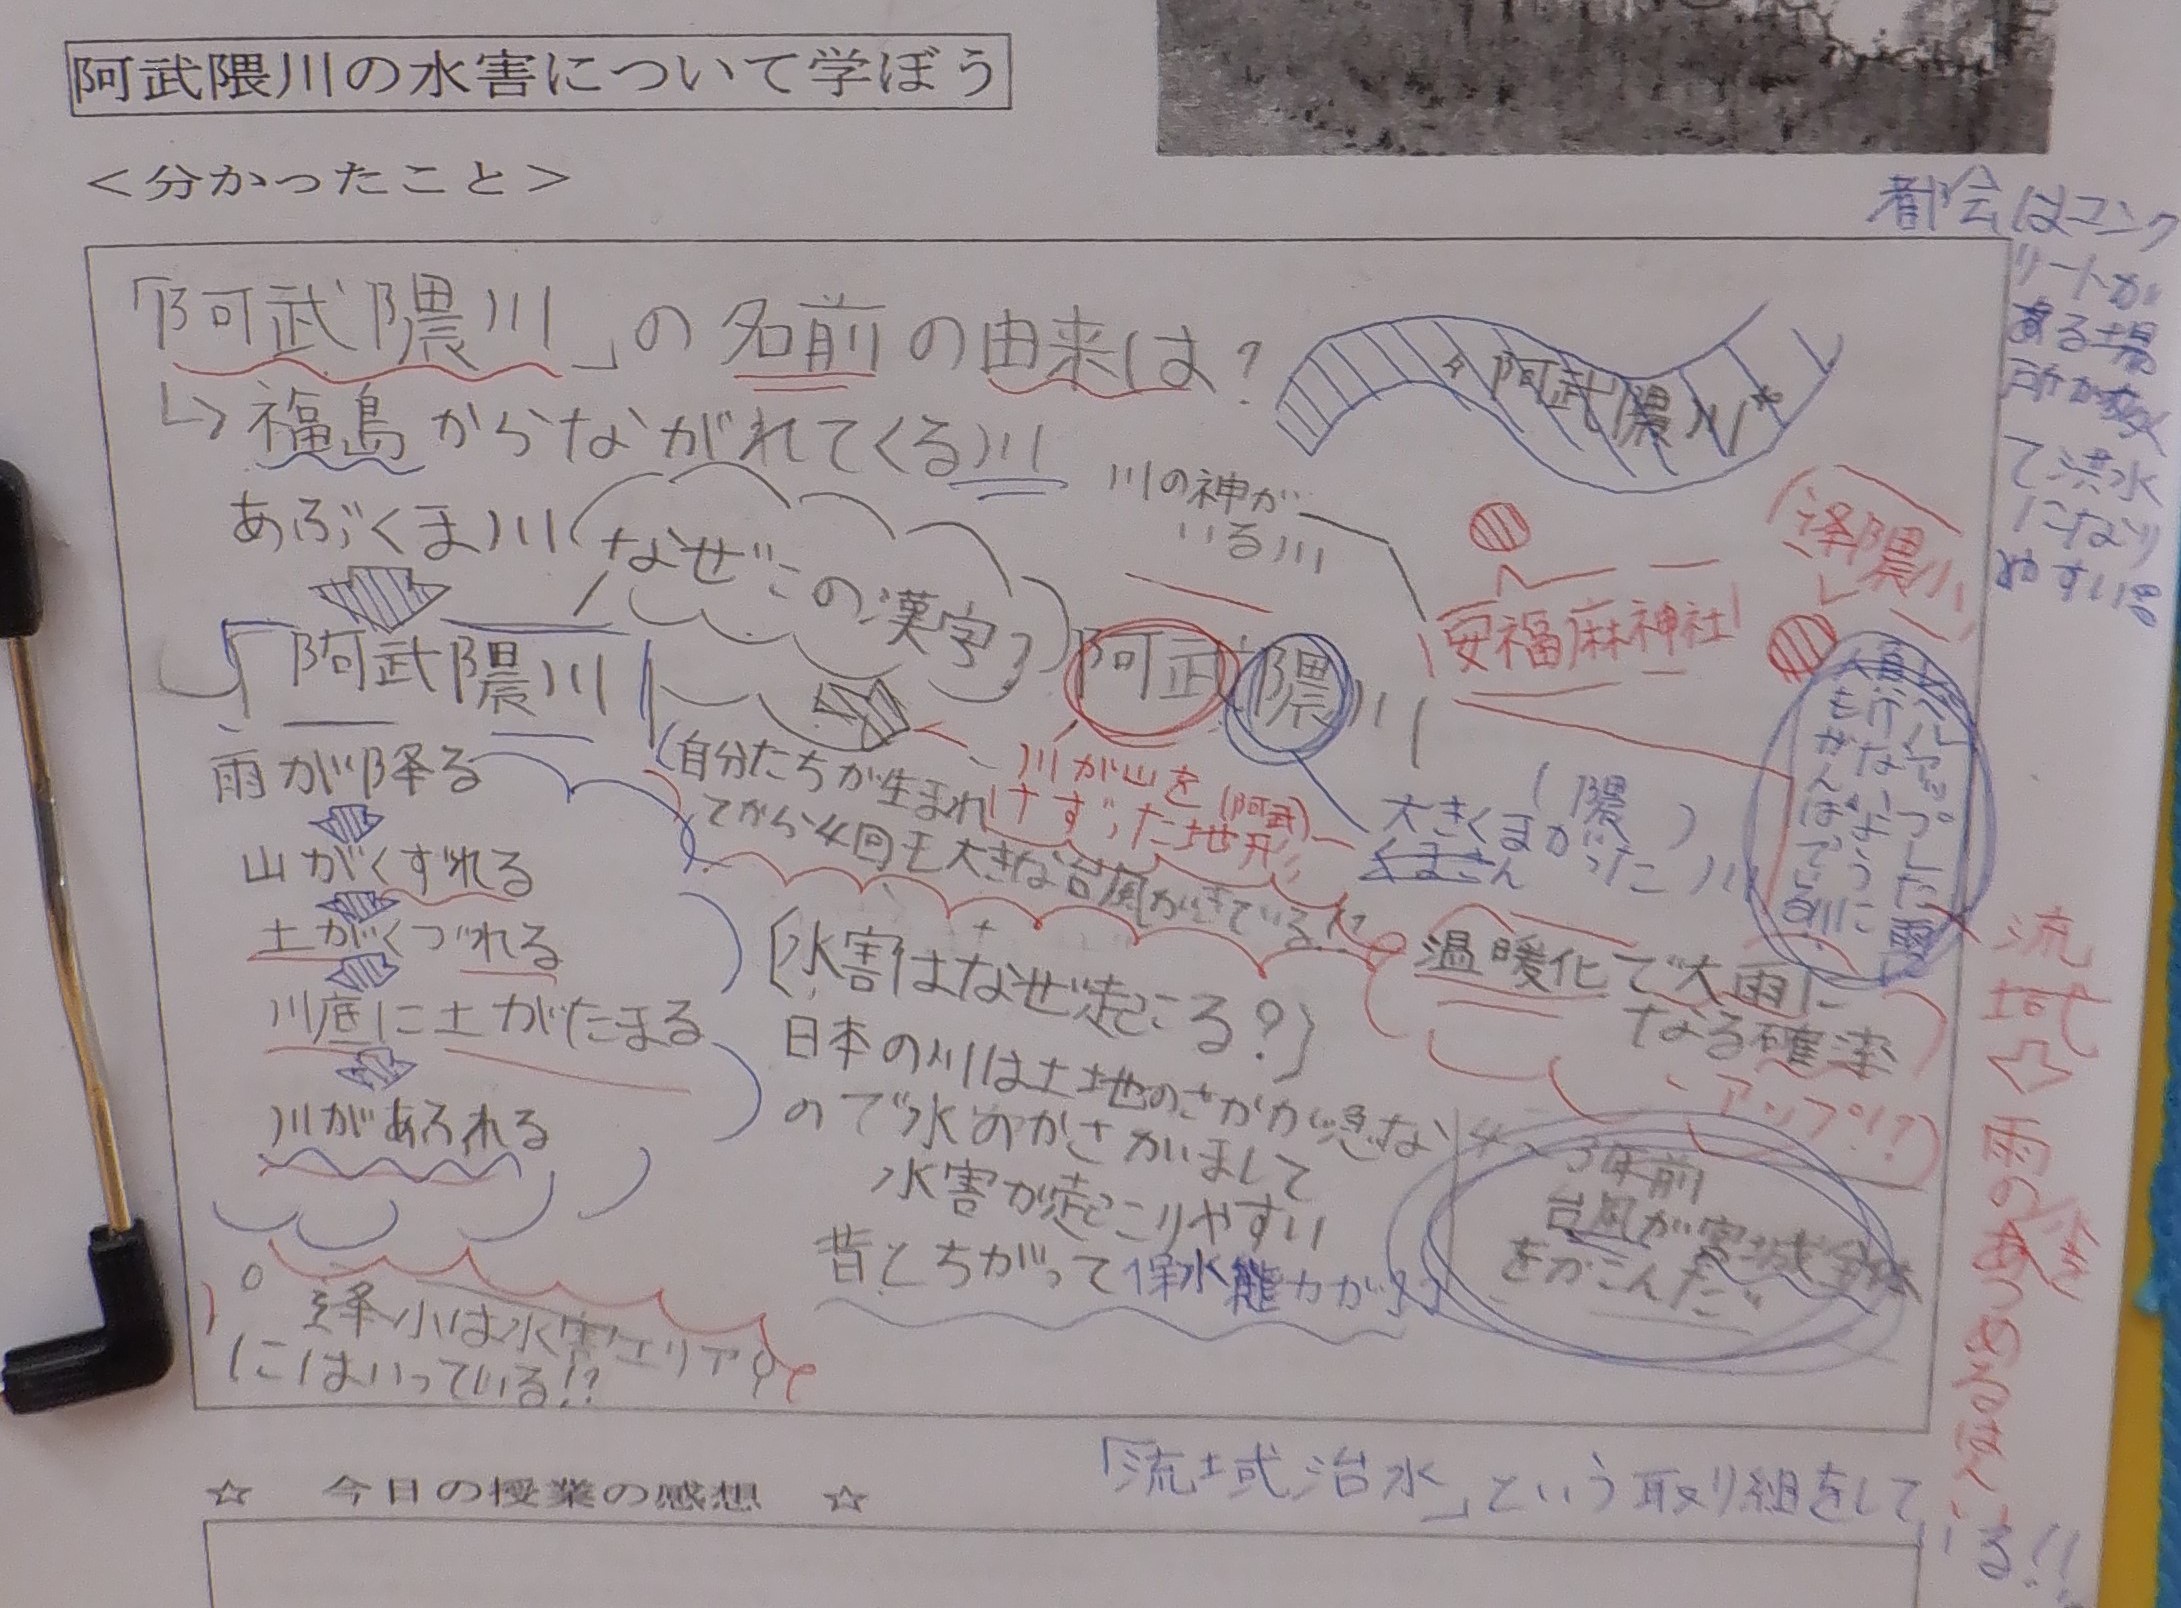 阿武隈川の水害について学ぼう
＜分かったこと＞
「阿武隈川」の名前の由来は?
↳福島からながれてくる川
あぶくま川
なぜこの漢字
「阿武隈川」
阿武隈川
川の神が
いる川
安福麻神社
阿武隈川
川が山を(阿武)
けずった地形
(隈)
大きくまがった川
くまさん
(自分たちが生まれ
てから4回も大きな台風がきている
雨が降る
山がくずれる
土がくづれる
川底に土がたまる
川があふれる
逢小は水害エリア
にはいっている!?
〔水害はなぜ起こる?〕
日本の川は土地のさかが急な
ので水のかさがまして
水害が起こりやすい
昔とちがって保水能力が
温暖化で大雨に
なる確率
アップ!?
3年前
台風が宮城全体
をかこんだ
レベルアップした雨
行なっように
もがんばっている
逢隈小
都会はコンク
リートが
ある場
所が多く
て洪水
になり
やすい
流域
⇩
雨の
あつめるはんい
☆　今日の授業の感想　☆
「流域治水」という取り組をして
いる!!